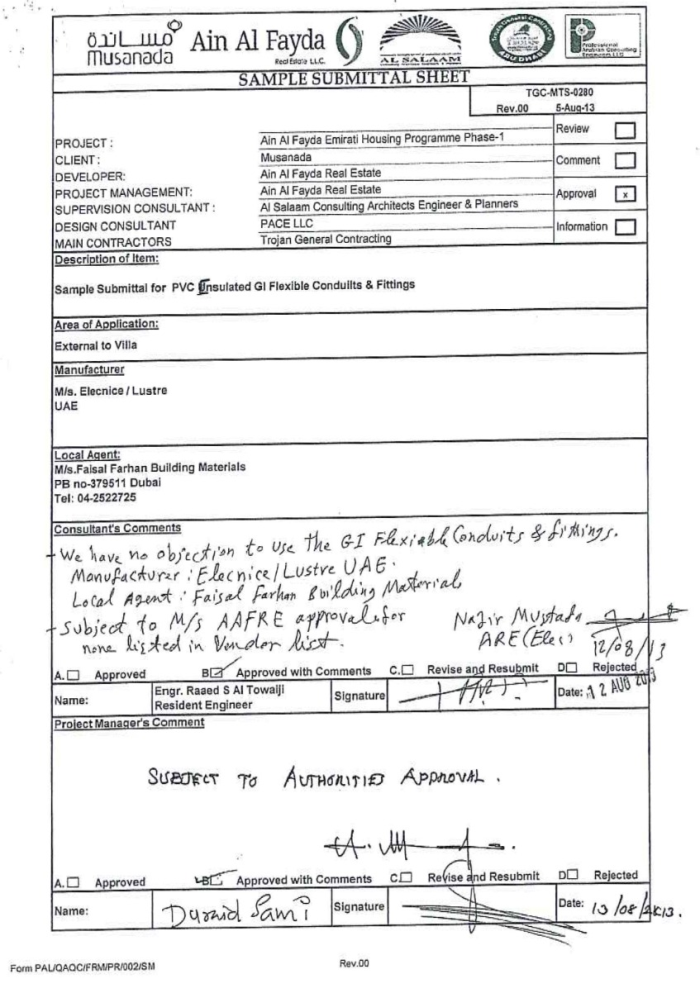 مساندة
Musanada
Ain Al Fayda
Real Estate L.L.C.
AL SALAAM
ABU DHABI
Professional
Arabian Consulting
Engineers LLC
SAMPLE SUBMITTAL SHEET
TGC-MTS-0280
Rev.00 5-Aug-13
PROJECT : Ain Al Fayda Emirati Housing Programme Phase-1 Review
CLIENT : Musanada Comment
DEVELOPER: Ain Al Fayda Real Estate
PROJECT MANAGEMENT: Ain Al Fayda Real Estate Approval x
SUPERVISION CONSULTANT : Al Salaam Consulting Architects Engineer & Planners
DESIGN CONSULTANT PACE LLC Information
MAIN CONTRACTORS Trojan General Contracting
Description of Item:
Sample Submittal for PVC Insulated GI Flexible Conduilts & Fittings
Area of Application:
External to Villa
Manufacturer
M/s. Elecnice / Lustre
UAE
Local Agent:
M/s.Faisal Farhan Building Materials
PB no-379511 Dubai
Tel: 04-2522725
Consultant's Comments
- We have no objection to use the GI Flexiable Conduits & fittings.
Manufacturer : Elecnice / Lustre UAE.
Local Agent : Faisal Farhan Building Materials
- Subject to M/s AAFRE approval for Nazir Mustafa
none listed in Vendor list. ARE (Elec) 12/08/13
A. Approved B Approved with Comments C. Revise and Resubmit D Rejected
Name: Engr. Raaed S Al Towaiji Signature Date: 12 AUG 2013
Resident Engineer
Project Manager's Comment
SUBJECT TO AUTHORITIES APPROVAL.
A. Approved B Approved with Comments C Revise and Resubmit D Rejected
Name: Duraid Sami Signature Date: 13/08/2013.
Form PAL/QAQC/FRM/PR/002/SM Rev.00